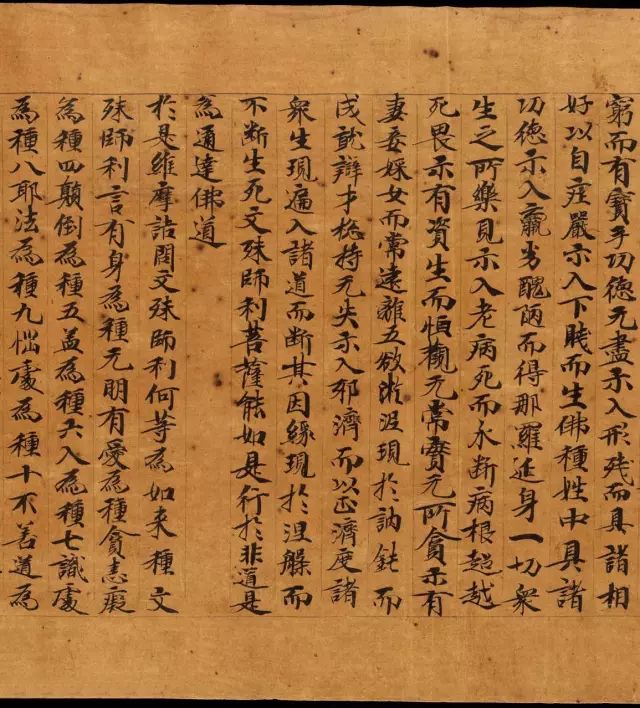 窮而有寶手功德无盡示入形残而具諸相
好以自莊嚴示入下賎而生佛種姓中具諸
功徳示入羸劣醜陋而得那羅延身一切衆
生之所樂見示入老病死而永断病根超越
死畏示有資生而恒觀无常實无所貪示有
妻妾婇女而常遠離五欲淤泥現於訥鈍而
成就辯才揔持无失示入邪濟而以正濟度諸
衆生現遍入諸道而断其因縁現於涅槃而
不断生死文殊師利菩薩能如是行於非道是
為通達佛道
於是維摩詰問文殊師利何等為如来種文
殊師利言有身為種无明有愛為種貪恚癡
為種四顛倒為種五盖為種六入為種七識處
為種八耶法為種九惱處為種十不善道為